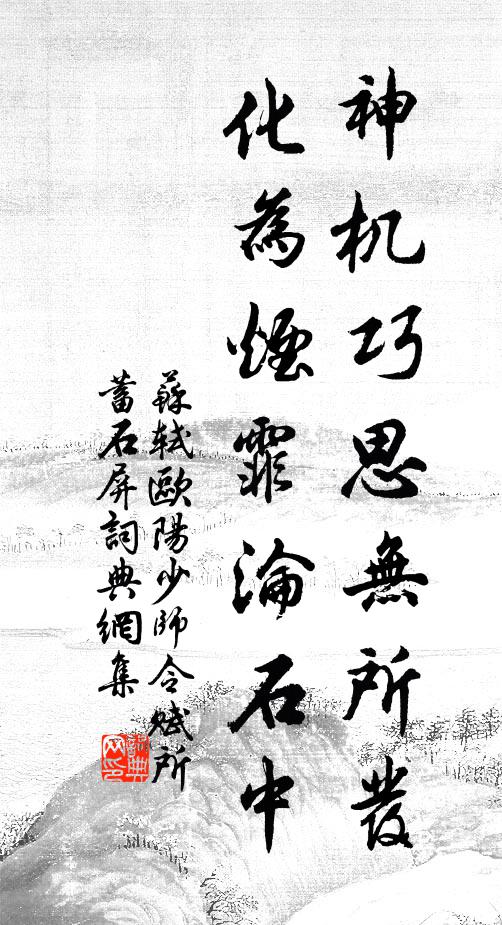 神机巧思無所發
化為煙霏淪石中
蘇軾歐陽少師令賦所
蓄石屏詞典網集
詞典网印